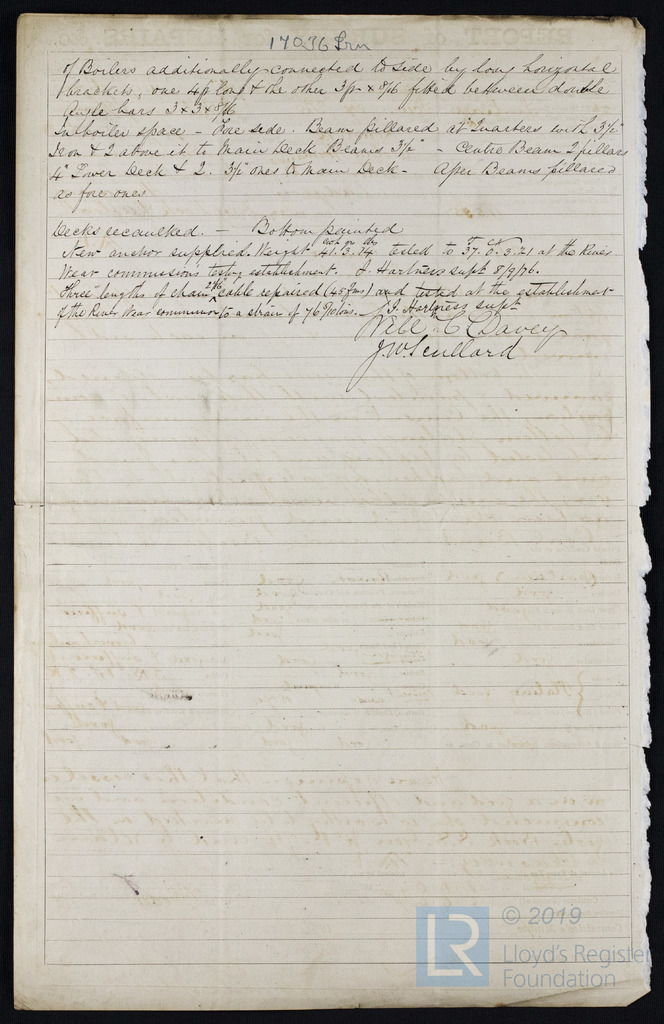 17036 Irn
of Boilers additionally connected to side by long horizontal
brackets, one 4ft long & the other 3ft × 8/16 fitted between double
Angle bars 3 × 3 × 8/16
In boiler space – Fore side. Beam pillared at Quarters with 3½"
Iron & 2 above it to Main Deck Beams 3½" – Centre Beam 2 pillars
4" Lower Deck & 2. 3½" ones to Main Deck – After Beams pillared
as fore ones
Decks recaulked. – Bottom painted
New anchor supplied. Weight 41.3.14 tested to 37.0.3.21 at the River
Wear commissions testing establishment. J. Hartness supt 8/9/76.
Three lengths of chain cable repaired (45 fms) and tested at the establishment
of the River Wear commission to a strain of 76 tons. J. Hartness supt
Will C Davey
J.W. Scullard
© 2019
LR
Lloyd's Register
Foundation